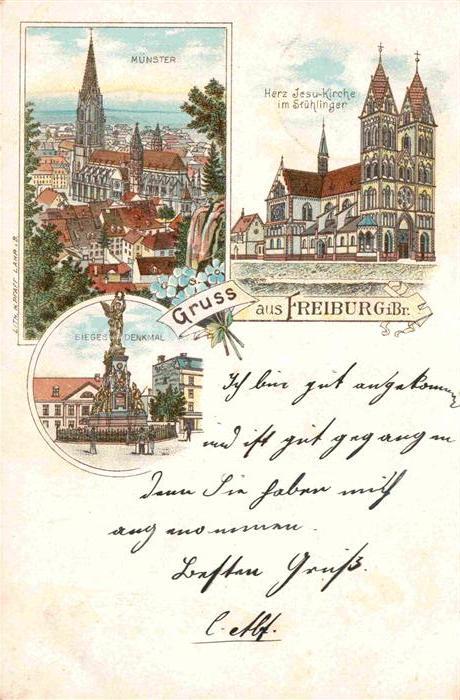 MÜNSTER
Herz Jesu-Kirche
im Stühlinger
LITH. K. PFAFF, LAHR i. B.
Gruss aus FREIBURG i Br.
SIEGES DENKMAL
Ich bin gut angekommen
und ist gut gegangen
denn Sie haben mich
angenommen.
Besten Gruß.